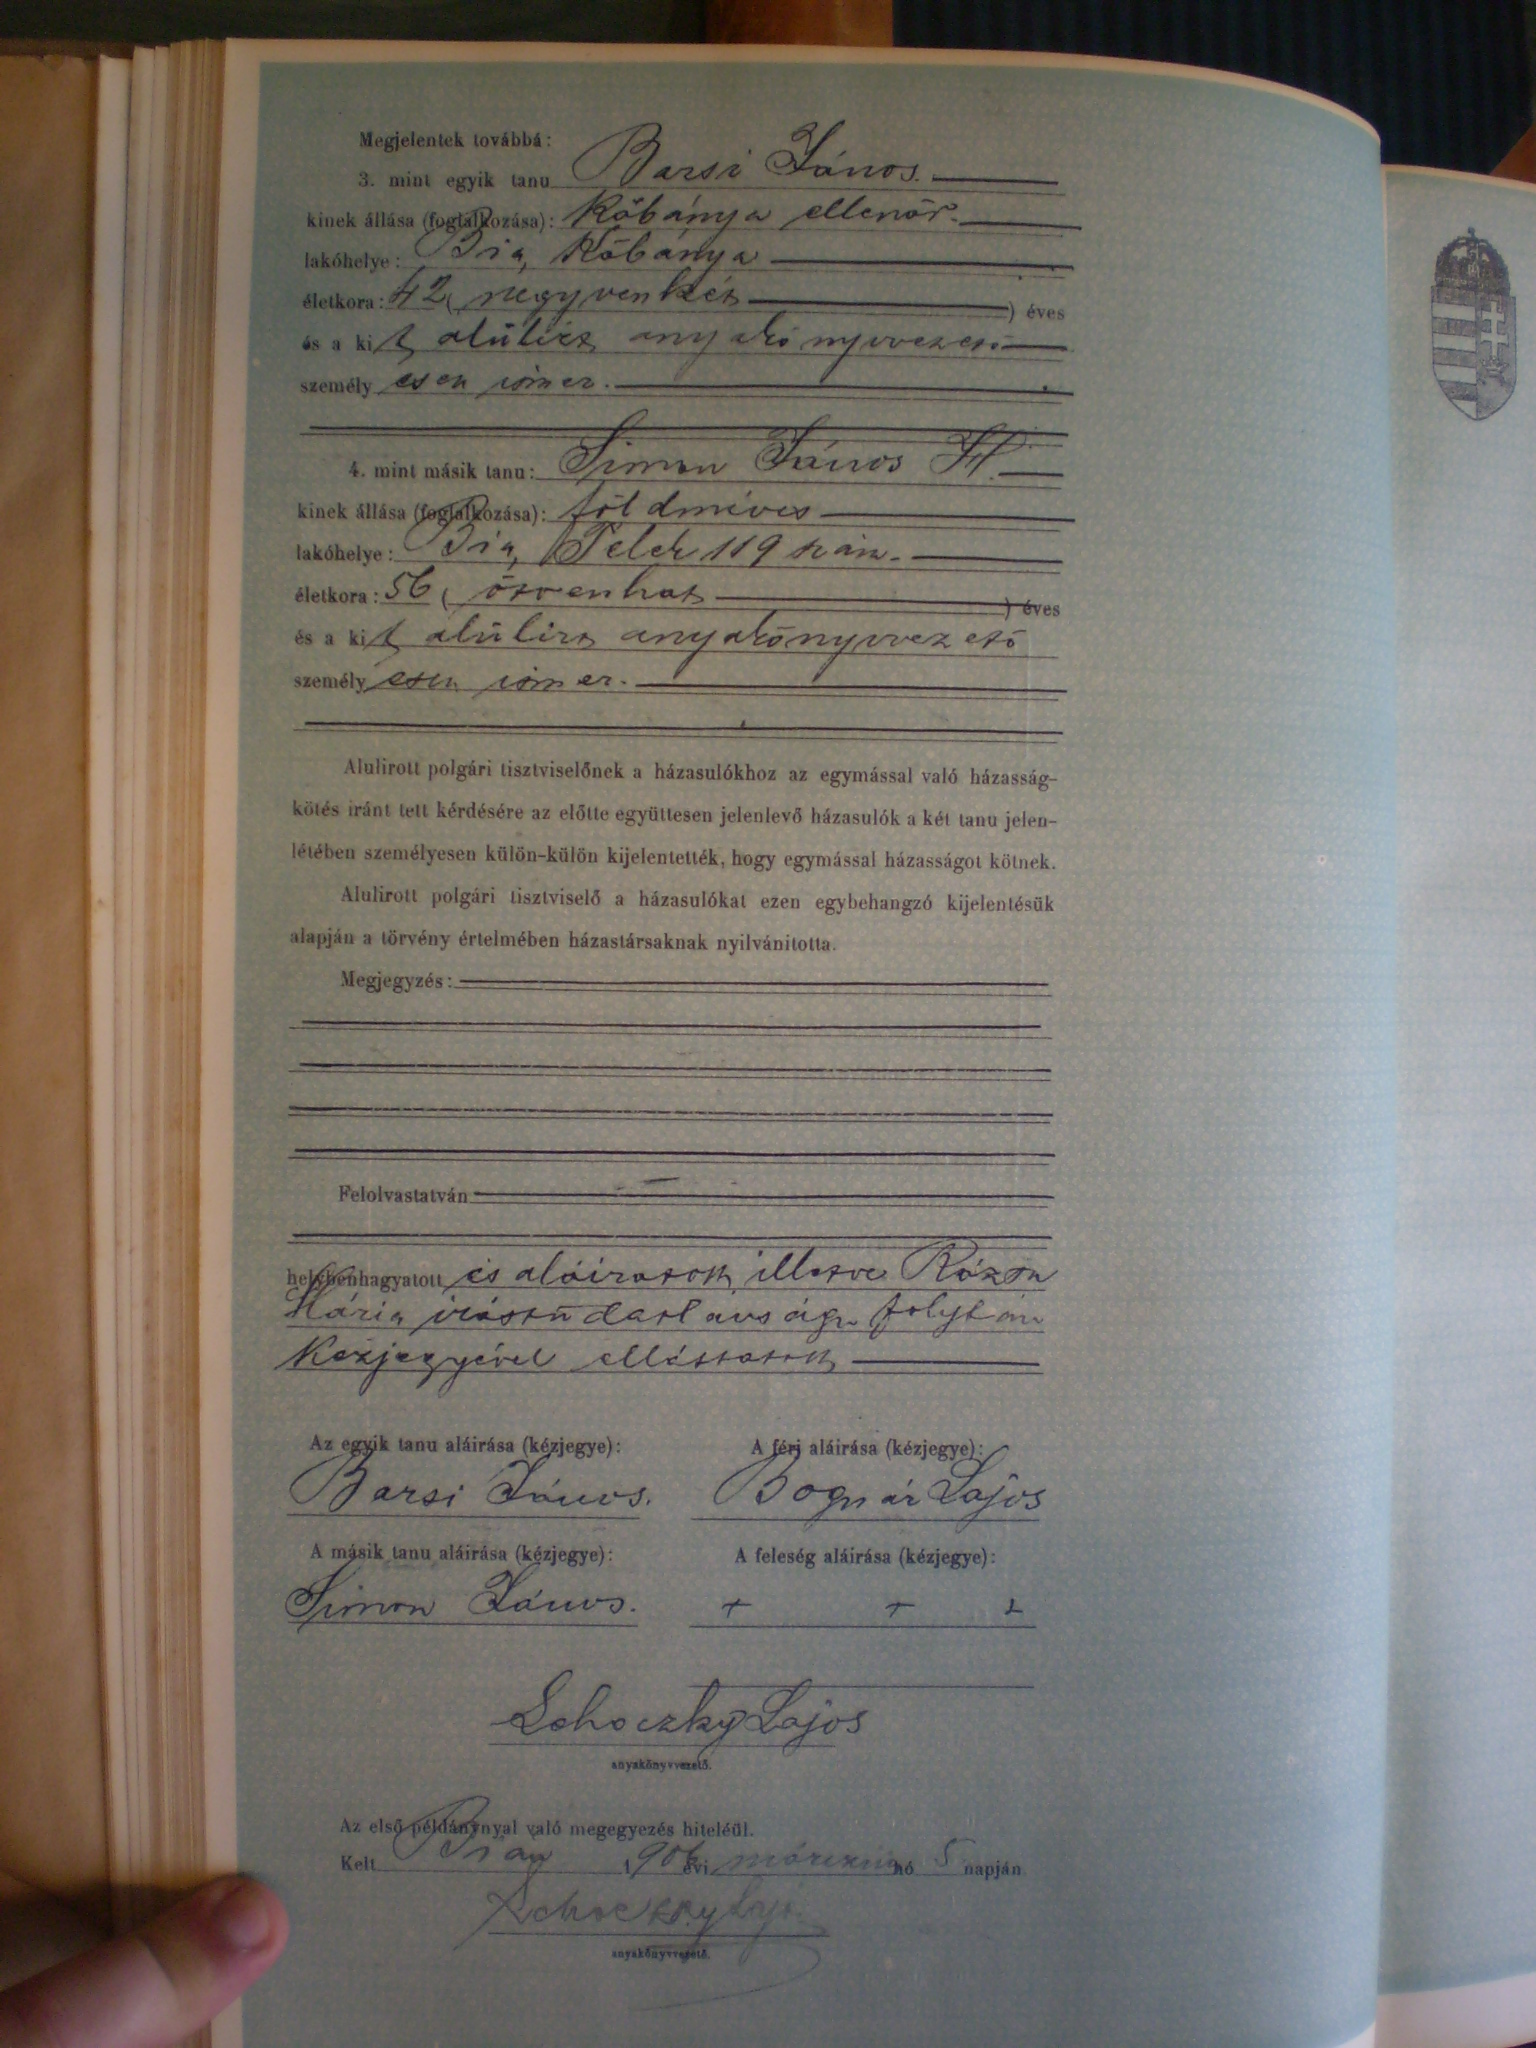 Megjelentek továbbá:
3. mint egyik tanu Barsi János.
kinek állása (foglalkozása): Kőbánya ellenőr.
lakóhelye: Bia, Kőbánya
életkora: 42 (negyvenkét ) éves
és a kit alúlirt anyakönyvvezető
személyesen ismer.
4. mint másik tanu: Simon János
kinek állása (foglalkozása): földmíves
lakóhelye: Bia, Telek 119 szám.
életkora: 56 (ötvenhat ) éves
és a kit alúlirt anyakönyvvezető
személyesen ismer.
Alulirott polgári tisztviselőnek a házasulókhoz az egymással való házasság-
kötés iránt tett kérdésére az előtte együttesen jelenlevő házasulók a két tanu jelen-
létében személyesen külön-külön kijelentették, hogy egymással házasságot kötnek.
Alulirott polgári tisztviselő a házasulókat ezen egybehangzó kijelentésük
alapján a törvény értelmében házastársaknak nyilvánitotta.
Megjegyzés:
Felolvastatván
helybenhagyatott és aláiratott, illetve Rózsa
Mária irástudatlansága folytán
kézjegyével elláttatott
Az egyik tanu aláirása (kézjegye): A férj aláirása (kézjegye):
Barsi János. Bognár Lajos
A másik tanu aláirása (kézjegye): A feleség aláirása (kézjegye):
Simon János. + + +
Lehoczky Lajos
anyakönyvvezető.
Az első példánynyal való megegyezés hiteléül.
Kelt Bián 1906 évi márczius hó 5 napján
Lehoczky Lajos
anyakönyvvezető.